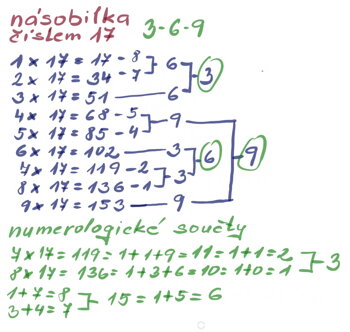 násobilka
číslem 17 3-6-9
1 × 17 = 17 - 8
6
2 × 17 = 34 - 7
3
3 × 17 = 51 — 6
4 × 17 = 68 - 5
9
5 × 17 = 85 - 4
6 × 17 = 102 — 3
6
9
7 × 17 = 119 - 2
3
8 × 17 = 136 - 1
9 × 17 = 153 — 9
numerologické součty
7 × 17 = 119 = 1 + 1 + 9 = 11 = 1 + 1 = 2
3
8 × 17 = 136 = 1 + 3 + 6 = 10 = 1 + 0 = 1
1 + 7 = 8
15 = 1 + 5 = 6
3 + 4 = 7